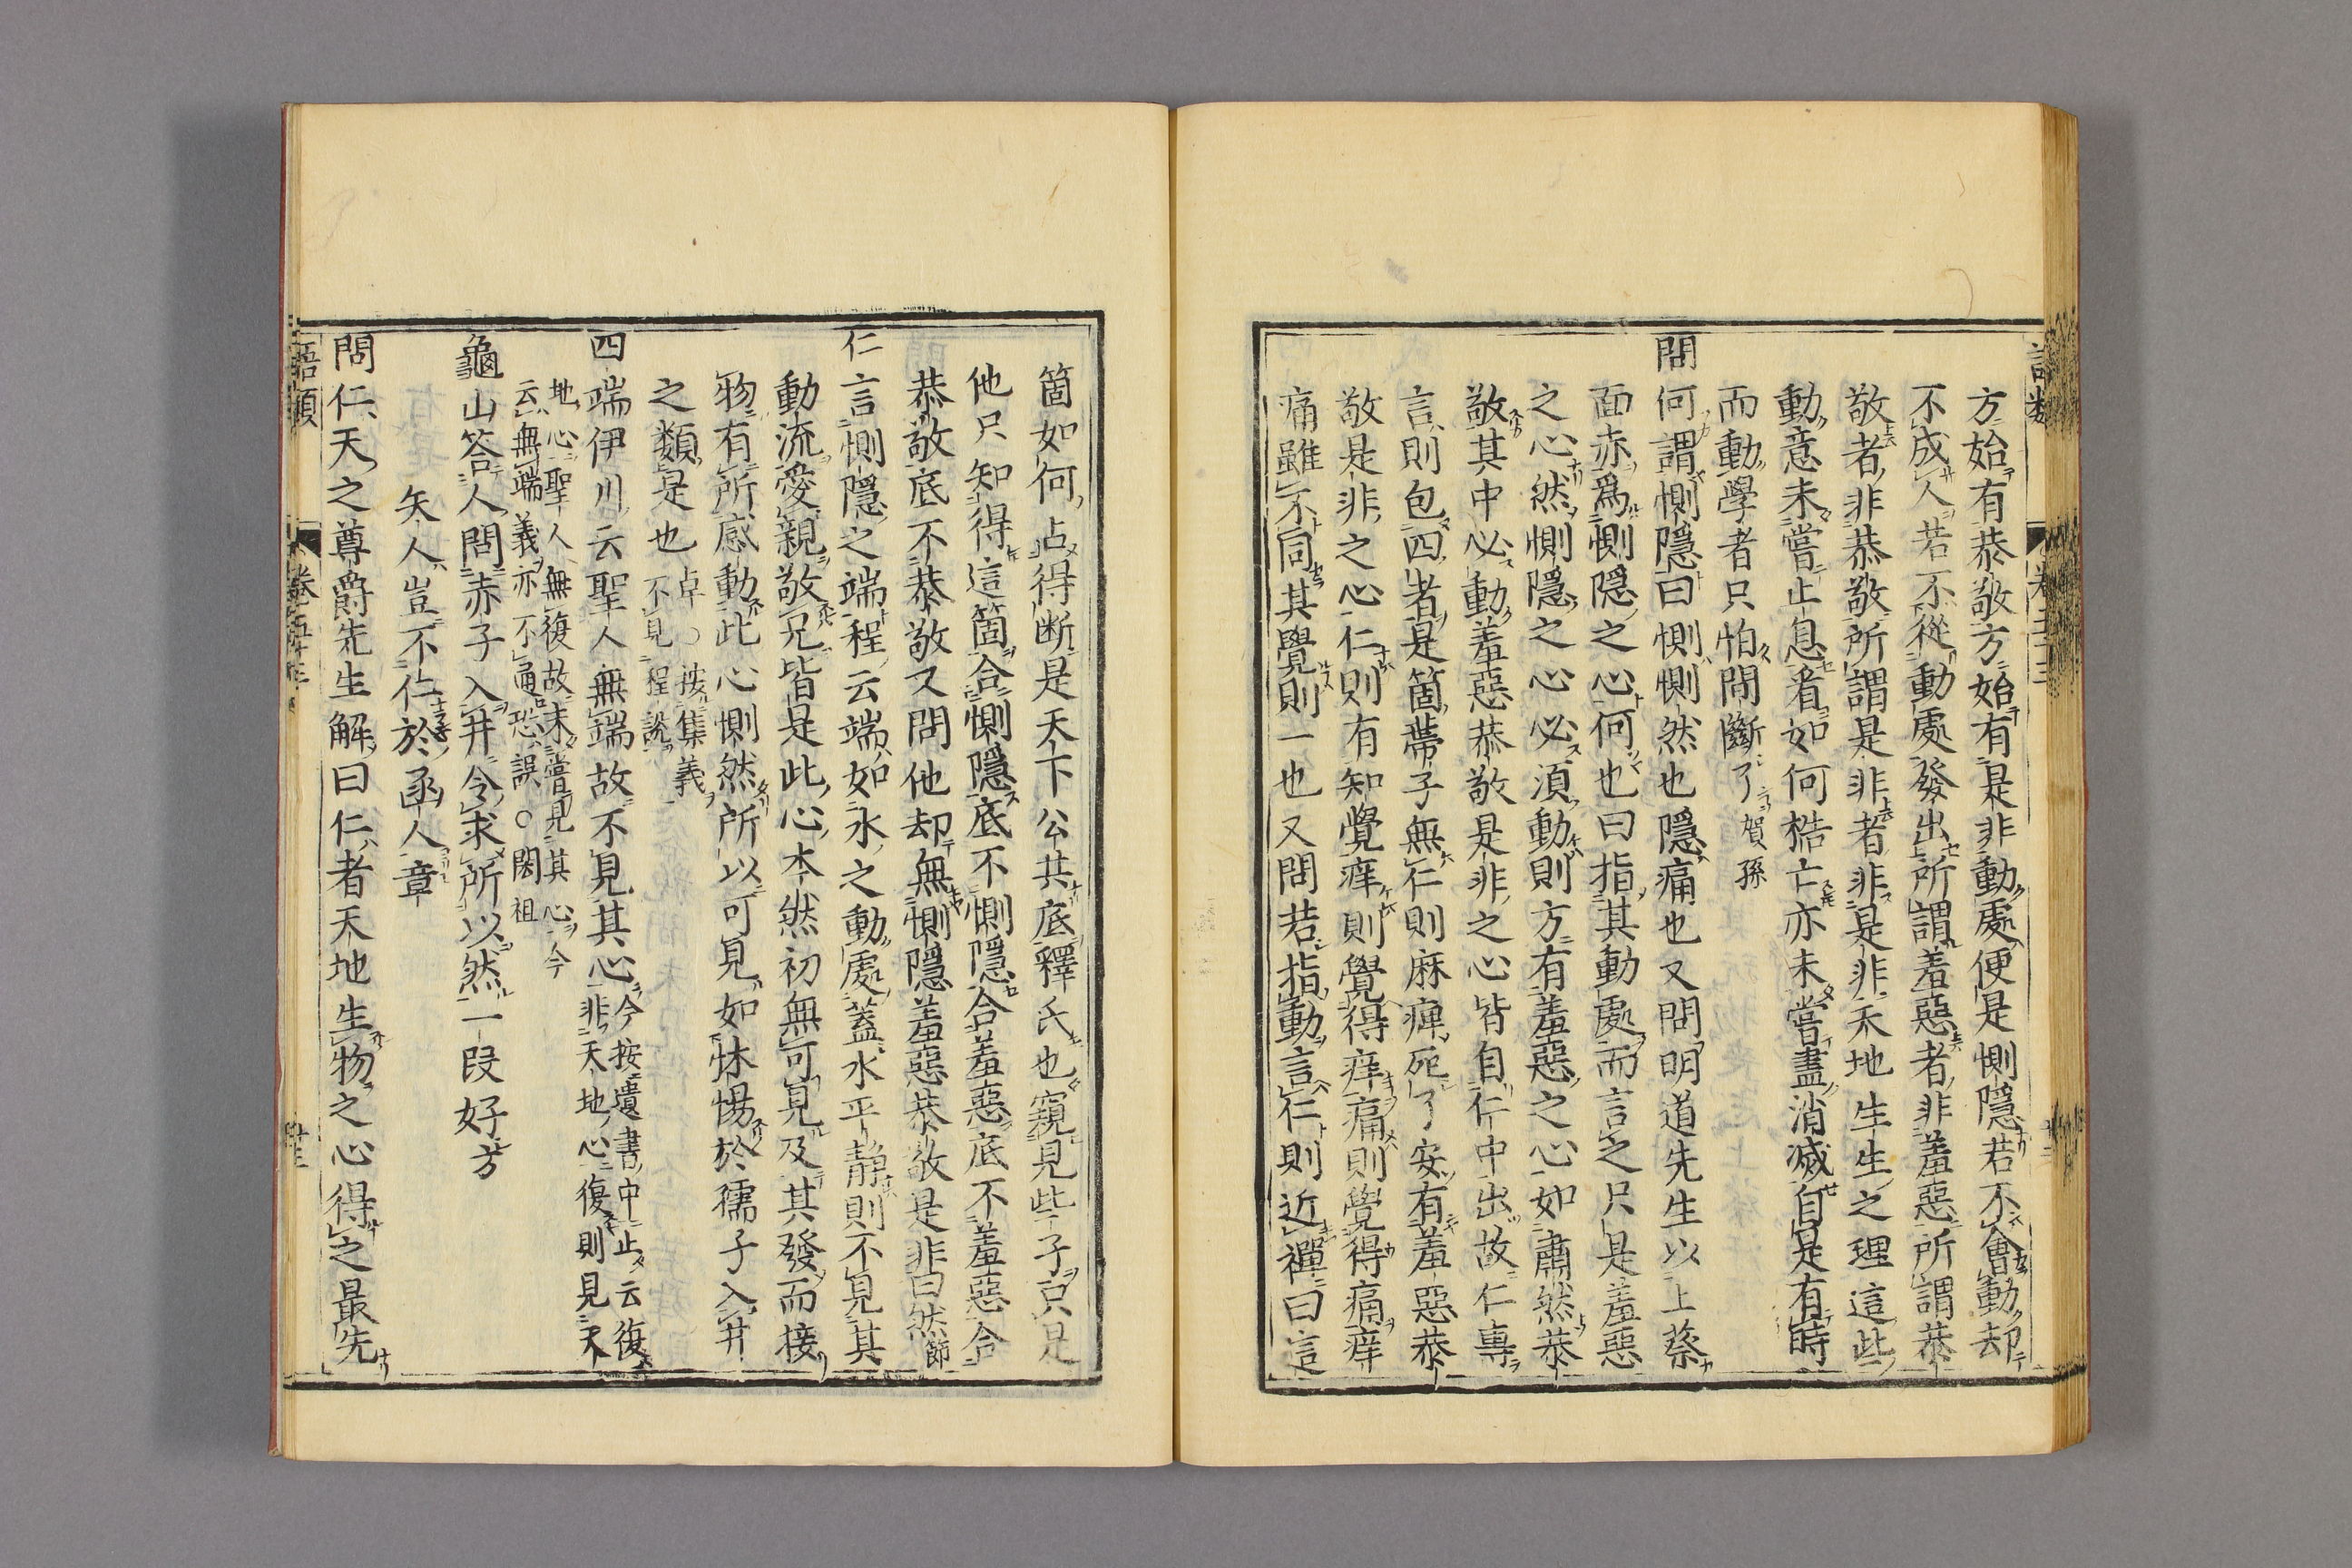 方始有恭敬方始有是非動處便是惻隱若不會動却
不成人若不從動處發出所謂羞惡者非羞惡所謂恭
敬者非恭敬所謂是非者非是非天地生生之理這些
動意未嘗止息看如何梏亡亦未嘗盡消滅自是有時
而動學者只怕間斷了賀孫
問何謂惻隱曰惻惻然也隱痛也又問明道先生以上蔡
面赤爲惻隱之心何也曰指其動處而言之只是羞惡
之心然惻隱之心必須動則方有羞惡之心如肅然恭
敬其中必動羞惡恭敬是非之心皆自仁中出故仁專
言則包四者是箇蔕子無仁則麻痺死了安有羞惡恭
敬是非之心仁則有知覺痒則覺得痒痛則覺得痛痒
痛雖不同其覺則一也又問若指動言仁則近禪曰這
箇如何占得断是天下公共底釋氏也窺見些子只是
他只知得這箇合惻隱底不惻隱合羞惡底不羞惡合
恭敬底不恭敬又問他却無惻隱羞惡恭敬是非曰然節
仁言惻隱之端程云端如水之動處蓋水平靜則不見其
動流愛親敬兄皆是此心本然初無可見及其發而接
物有所感動此心惻然所以可見如怵惕於孺子入井
之類是也卓○按集義
不見程說
四端伊川云聖人無端故不見其心今按遺書中止云復
非天地心復則見天
地心聖人無復故未嘗見其心今
云無端義亦不通恐誤○閎祖
龜山答人問赤子入井令求所以然一段好方
矢人豈不仁於函人章
問仁天之尊爵先生解曰仁者天地生物之心得之最先
語類
卷五十三
十三